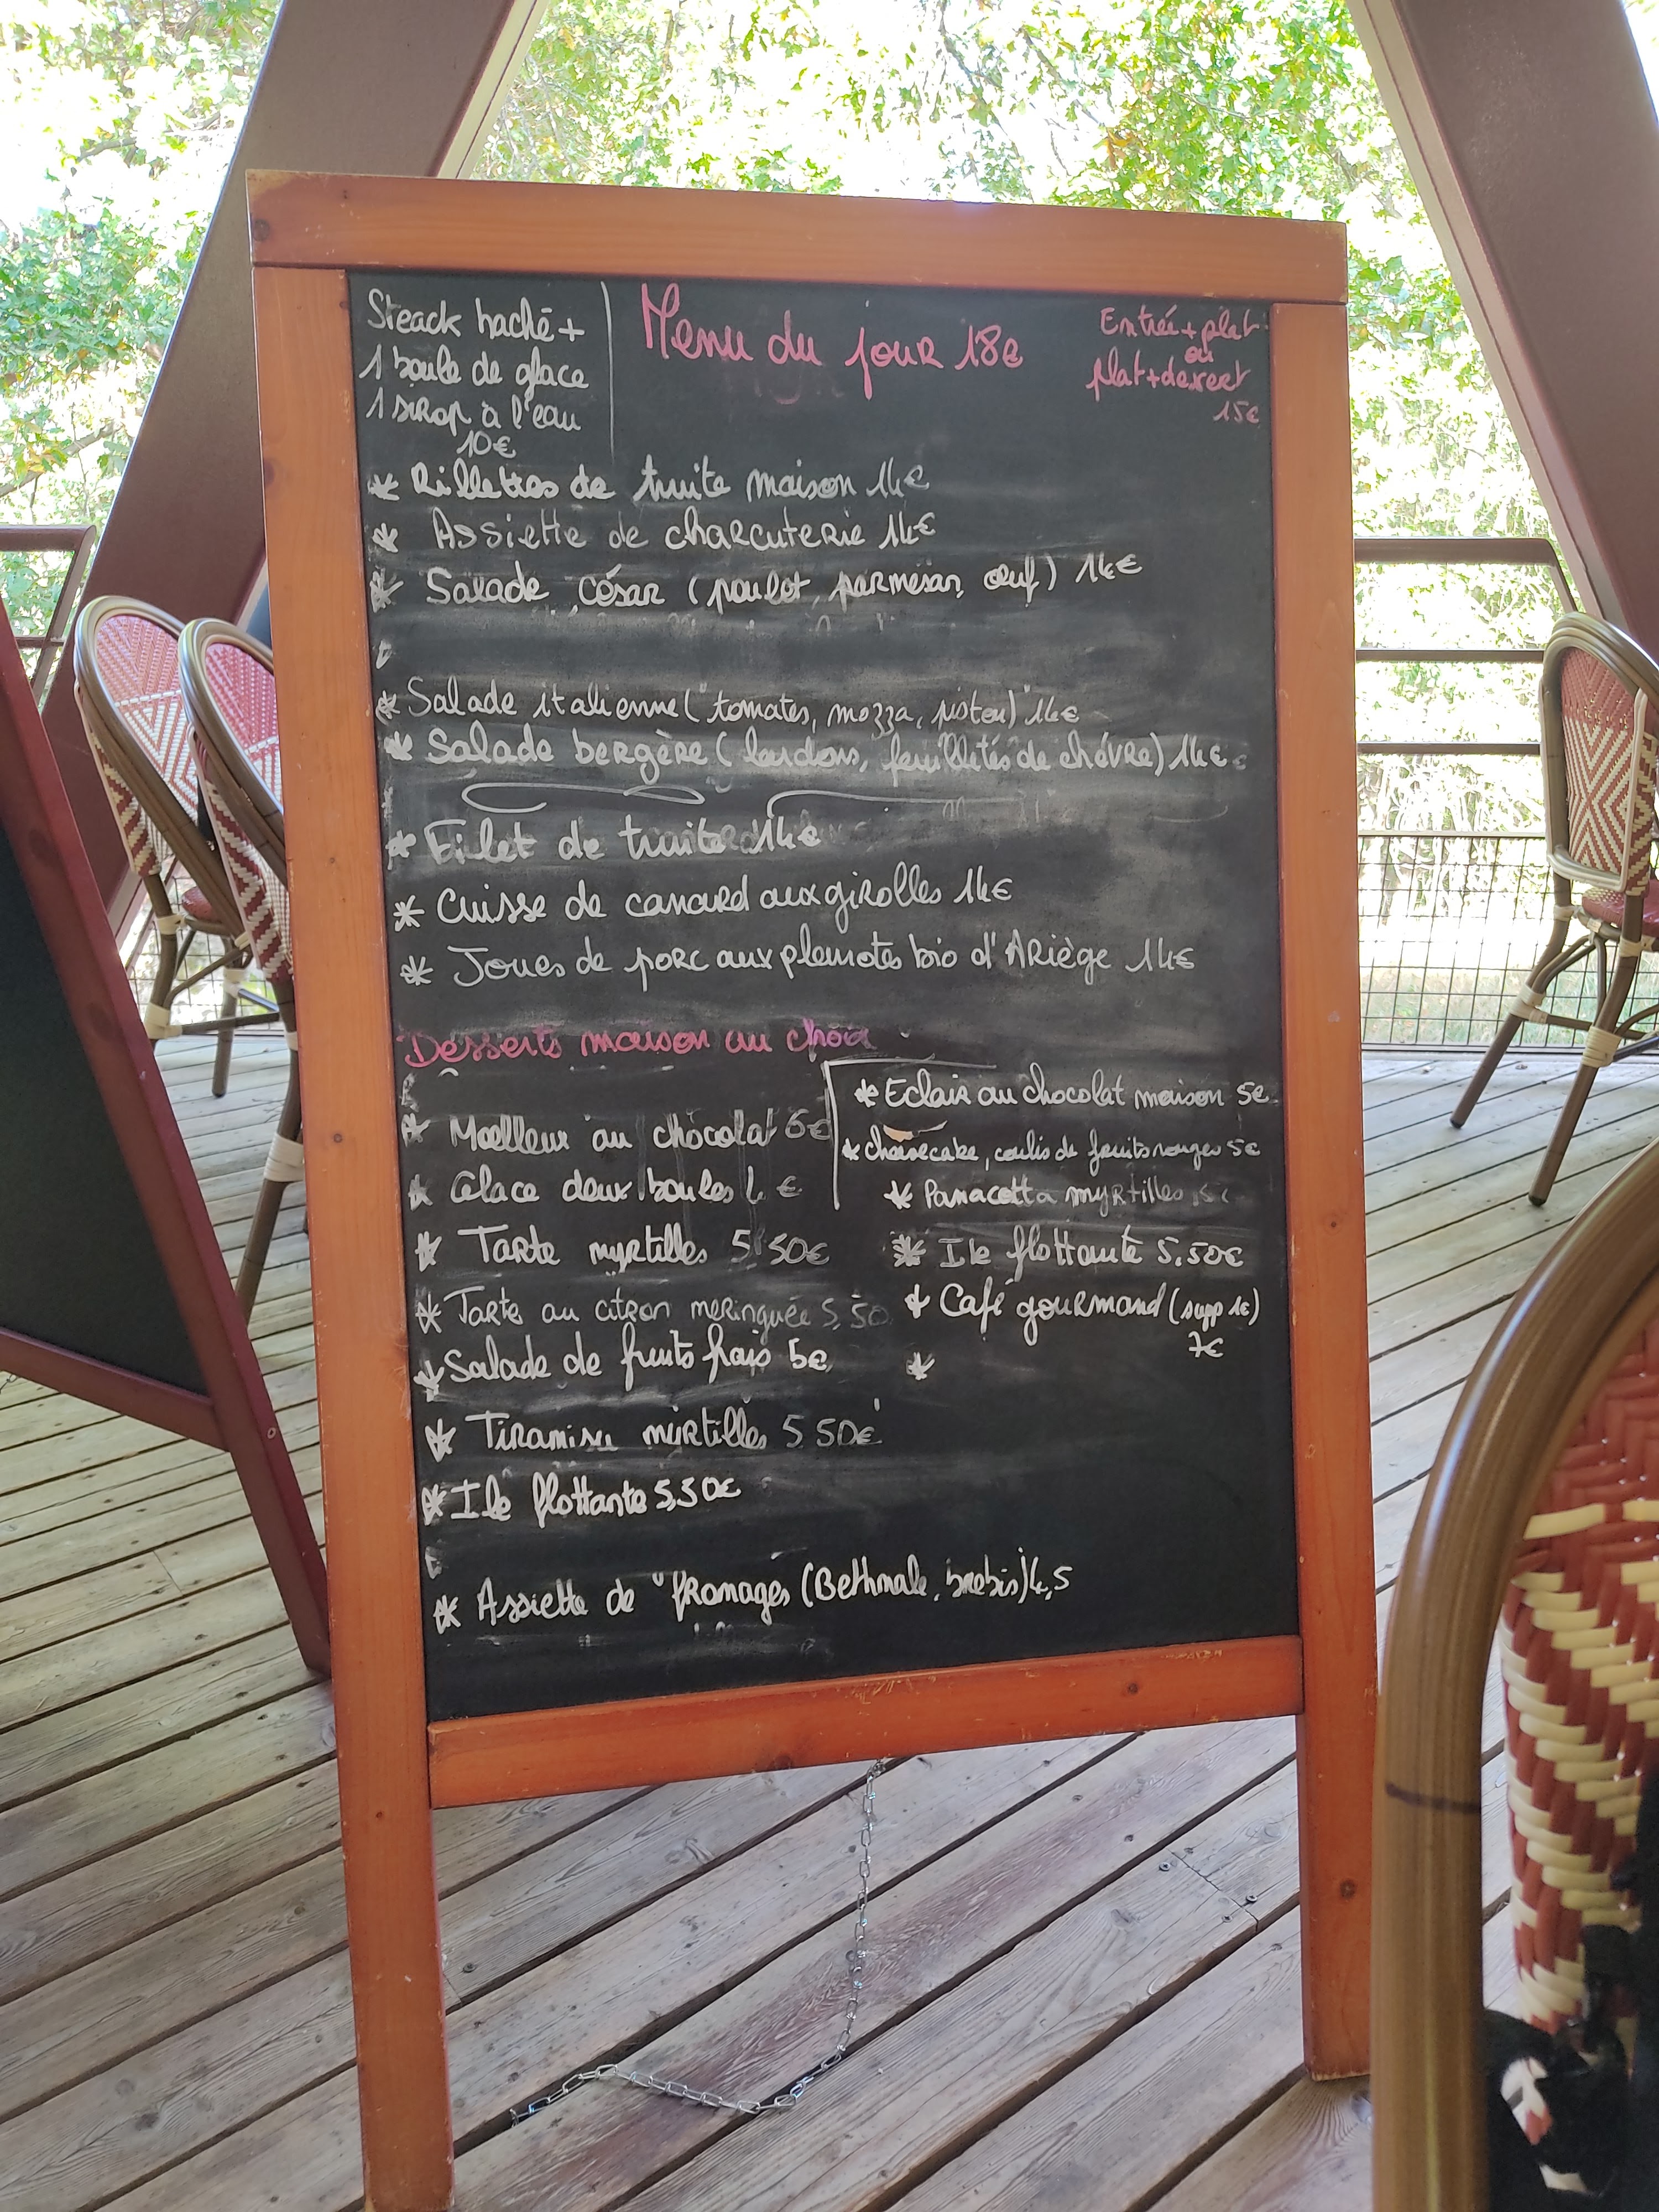 Steack haché +
1 boule de glace
1 sirop à l'eau
10€
Menu du jour 18€
Entrée + plat
ou
plat + dessert
15€
* Rillettes de truite maison 14€
* Assiette de charcuterie 14€
* Salade César (poulet, parmesan, œuf) 14€
* Salade italienne (tomates, mozza, pistou) 14€
* Salade bergère (lardons, feuilletés de chèvre) 14€
* Filet de truite 14€
* Cuisse de canard aux girolles 14€
* Joues de porc aux pleurotes bio d'Ariège 14€
Desserts maison au choix
* Moelleux au chocolat 6€
* Glace deux boules 4 €
* Tarte myrtilles 5,50€
* Tarte au citron meringuée 5,50
* Salade de fruits frais 5€
* Tiramisu myrtilles 5 50€
* Ile flottante 5,50€
* Assiette de fromages (Bethmale, brebis) 4,5
* Eclair au chocolat maison 5€
* cheesecake, coulis de fruits rouges 5€
* Panacotta myrtilles
* Ile flottante 5,50€
* Café gourmand (supp 1€)
7€
*